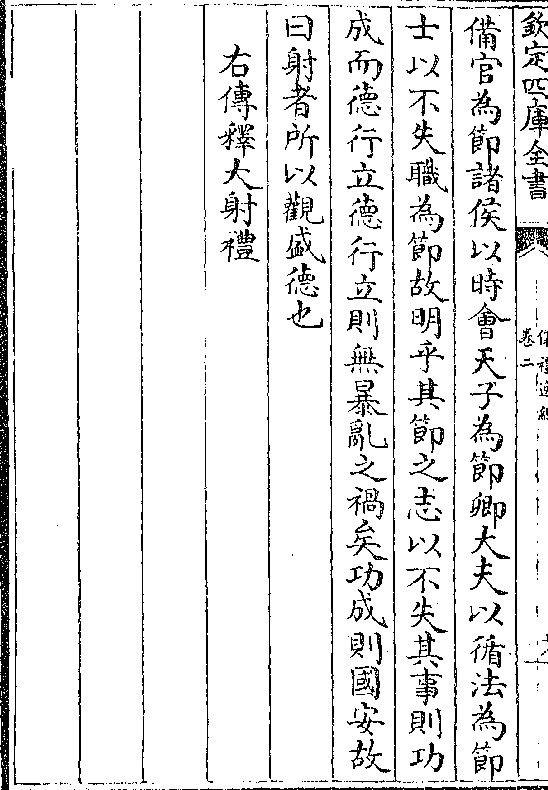 欽定四庫全書
卷二
備官為節諸侯以時會天子為節卿大夫以循法為節
士以不失職為節故明乎其節之志以不失其事則功
成而德行立德行立則無暴亂之禍矣功成則國安故
曰射者所以觀盛德也
右傳釋大射禮